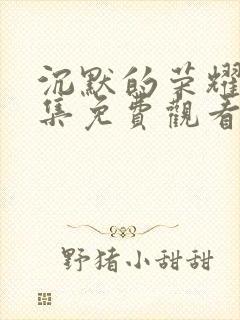 沉默的荣耀
集免費觀看
野猪小甜甜